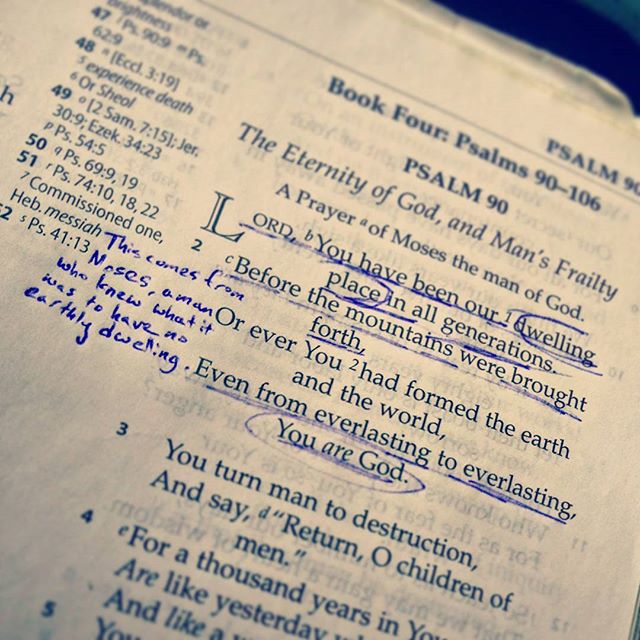 splendor or
brightness
47 Ps. 90:9 m Ps.
62:9
48 n [Eccl. 3:19]
5 experience death
6 Or Sheol
49 o [2 Sam. 7:15]; Jer.
30:9; Ezek. 34:23
p Ps. 54:5
50 q Ps. 69:9, 19
51 r Ps. 74:10, 18, 22
7 Commissioned one,
Heb. messiah
52 s Ps. 41:13
This comes from
Moses, a man
who knew what it
was to have no
earthly dwelling.
PSALM 90
Book Four: Psalms 90–106
PSALM 90
The Eternity of God, and Man's Frailty
A Prayer a of Moses the man of God.
LORD, b You have been our 1 dwelling
place in all generations.
2 c Before the mountains were brought
forth,
Or ever You 2 had formed the earth
and the world,
Even from everlasting to everlasting,
You are God.
3 You turn man to destruction,
And say, d "Return, O children of
men."
4 e For a thousand years in You
Are like yesterday
And like a
5 You